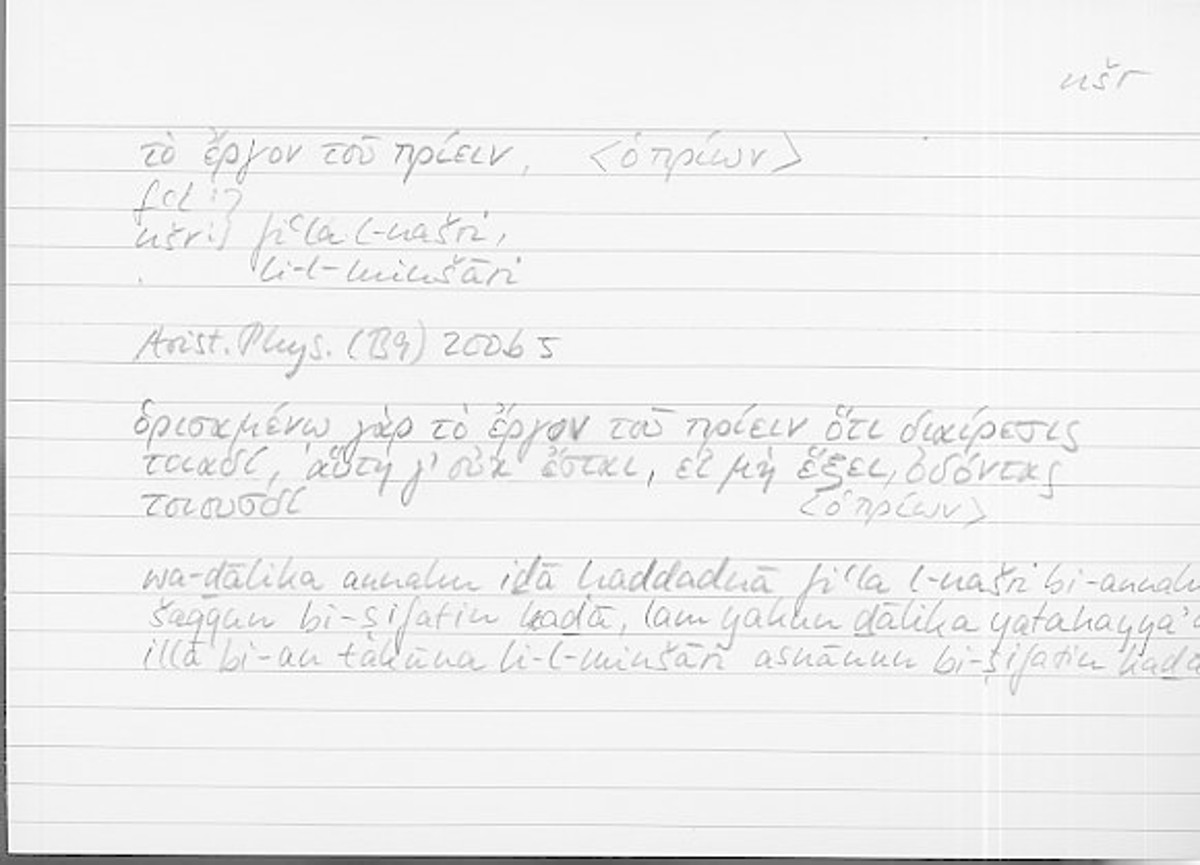 nšr
τὸ ἔργον τοῦ πρίειν, <ὁ πρίων>
fʿl :]
nšr :] fiʿla l-našri,
li-l-minšāri
Arist. Phys. (B9) 200b 5
ὁρισαμένῳ γὰρ τὸ ἔργον τοῦ πρίειν ὅτι διαίρεσις
τοιαδί, αὕτη γ' οὐκ ἔσται, εἰ μὴ ἕξει ὀδόντας
τοιουσδί <ὁ πρίων>
wa-ḏālika annahu iḏā ḥaddadnā fiʿla l-našri bi-annah
šaqqun bi-ṣifatin kaḏā, lam yakun ḏālika yatahayyaʾ
illā bi-an takūna li-l-minšāri asnānun bi-ṣifatin kaḏā